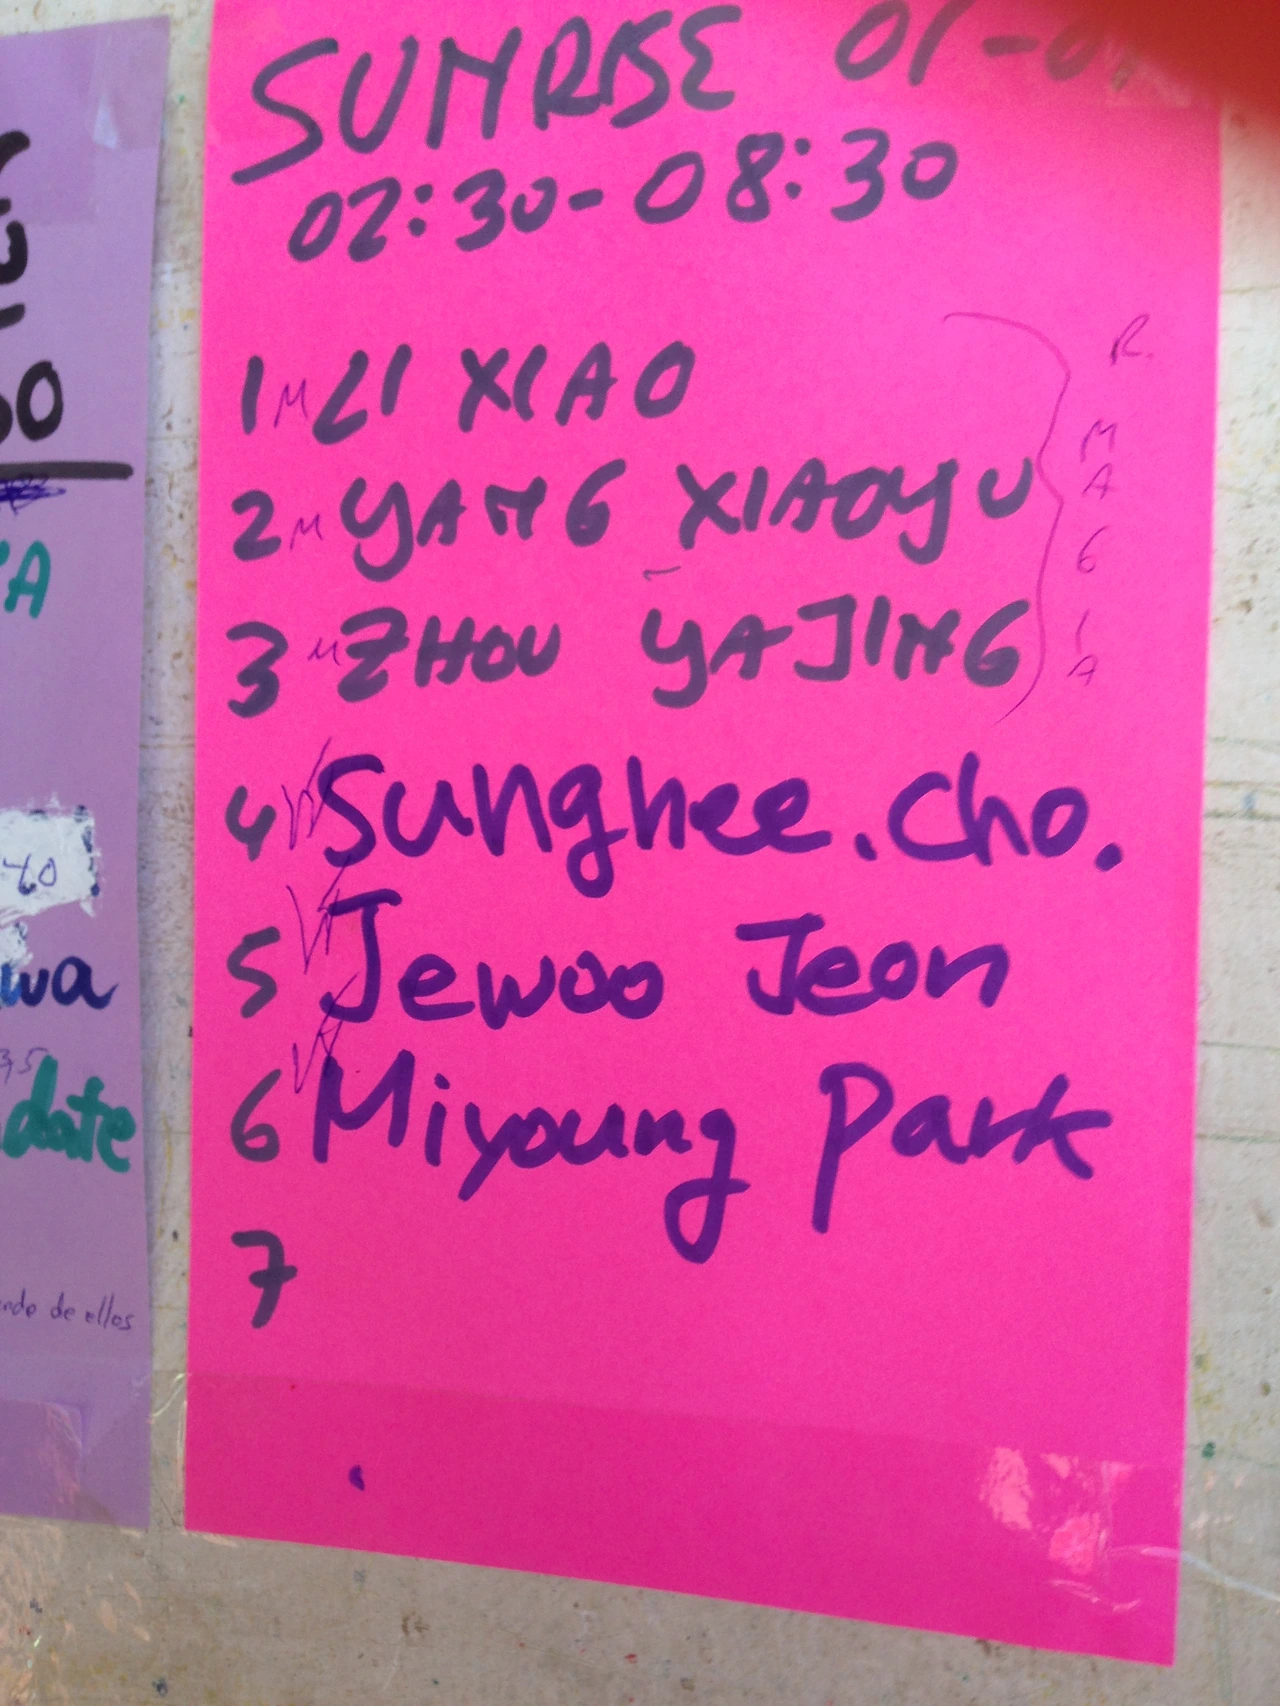 SUNRISE 01-0
02:30-08:30
1 M LI XIAO
2 M YANG XIAOYU
3 M ZHOU YAJING
R. MAGIA
4 Sunghee.Cho.
5 Jewoo Jeon
6 Miyoung Park
7
A
wa
date
de ellos